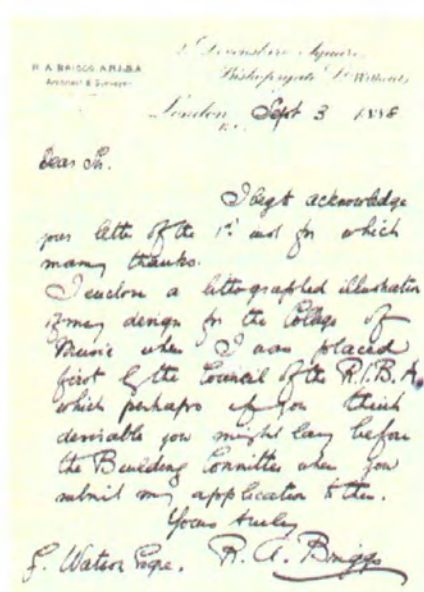 R. A. BRIGGS. A.R.I.B.A.
Architect & Surveyor
5, Devonshire Square,
Bishopsgate St Without,
London, Sept 3 1888
E.C.
Dear Sir.
I beg to acknowledge
your letter of the 1st inst for which
many thanks.
I enclose a lithographed illustration
of my design for the College of
Music when I was placed
first by the Council of the R.I.B.A.
which perhaps if you think
desirable you might lay before
the Building Committee when you
submit my application to them.
Yours truly
R. A. Briggs
J. Watson Esqre.